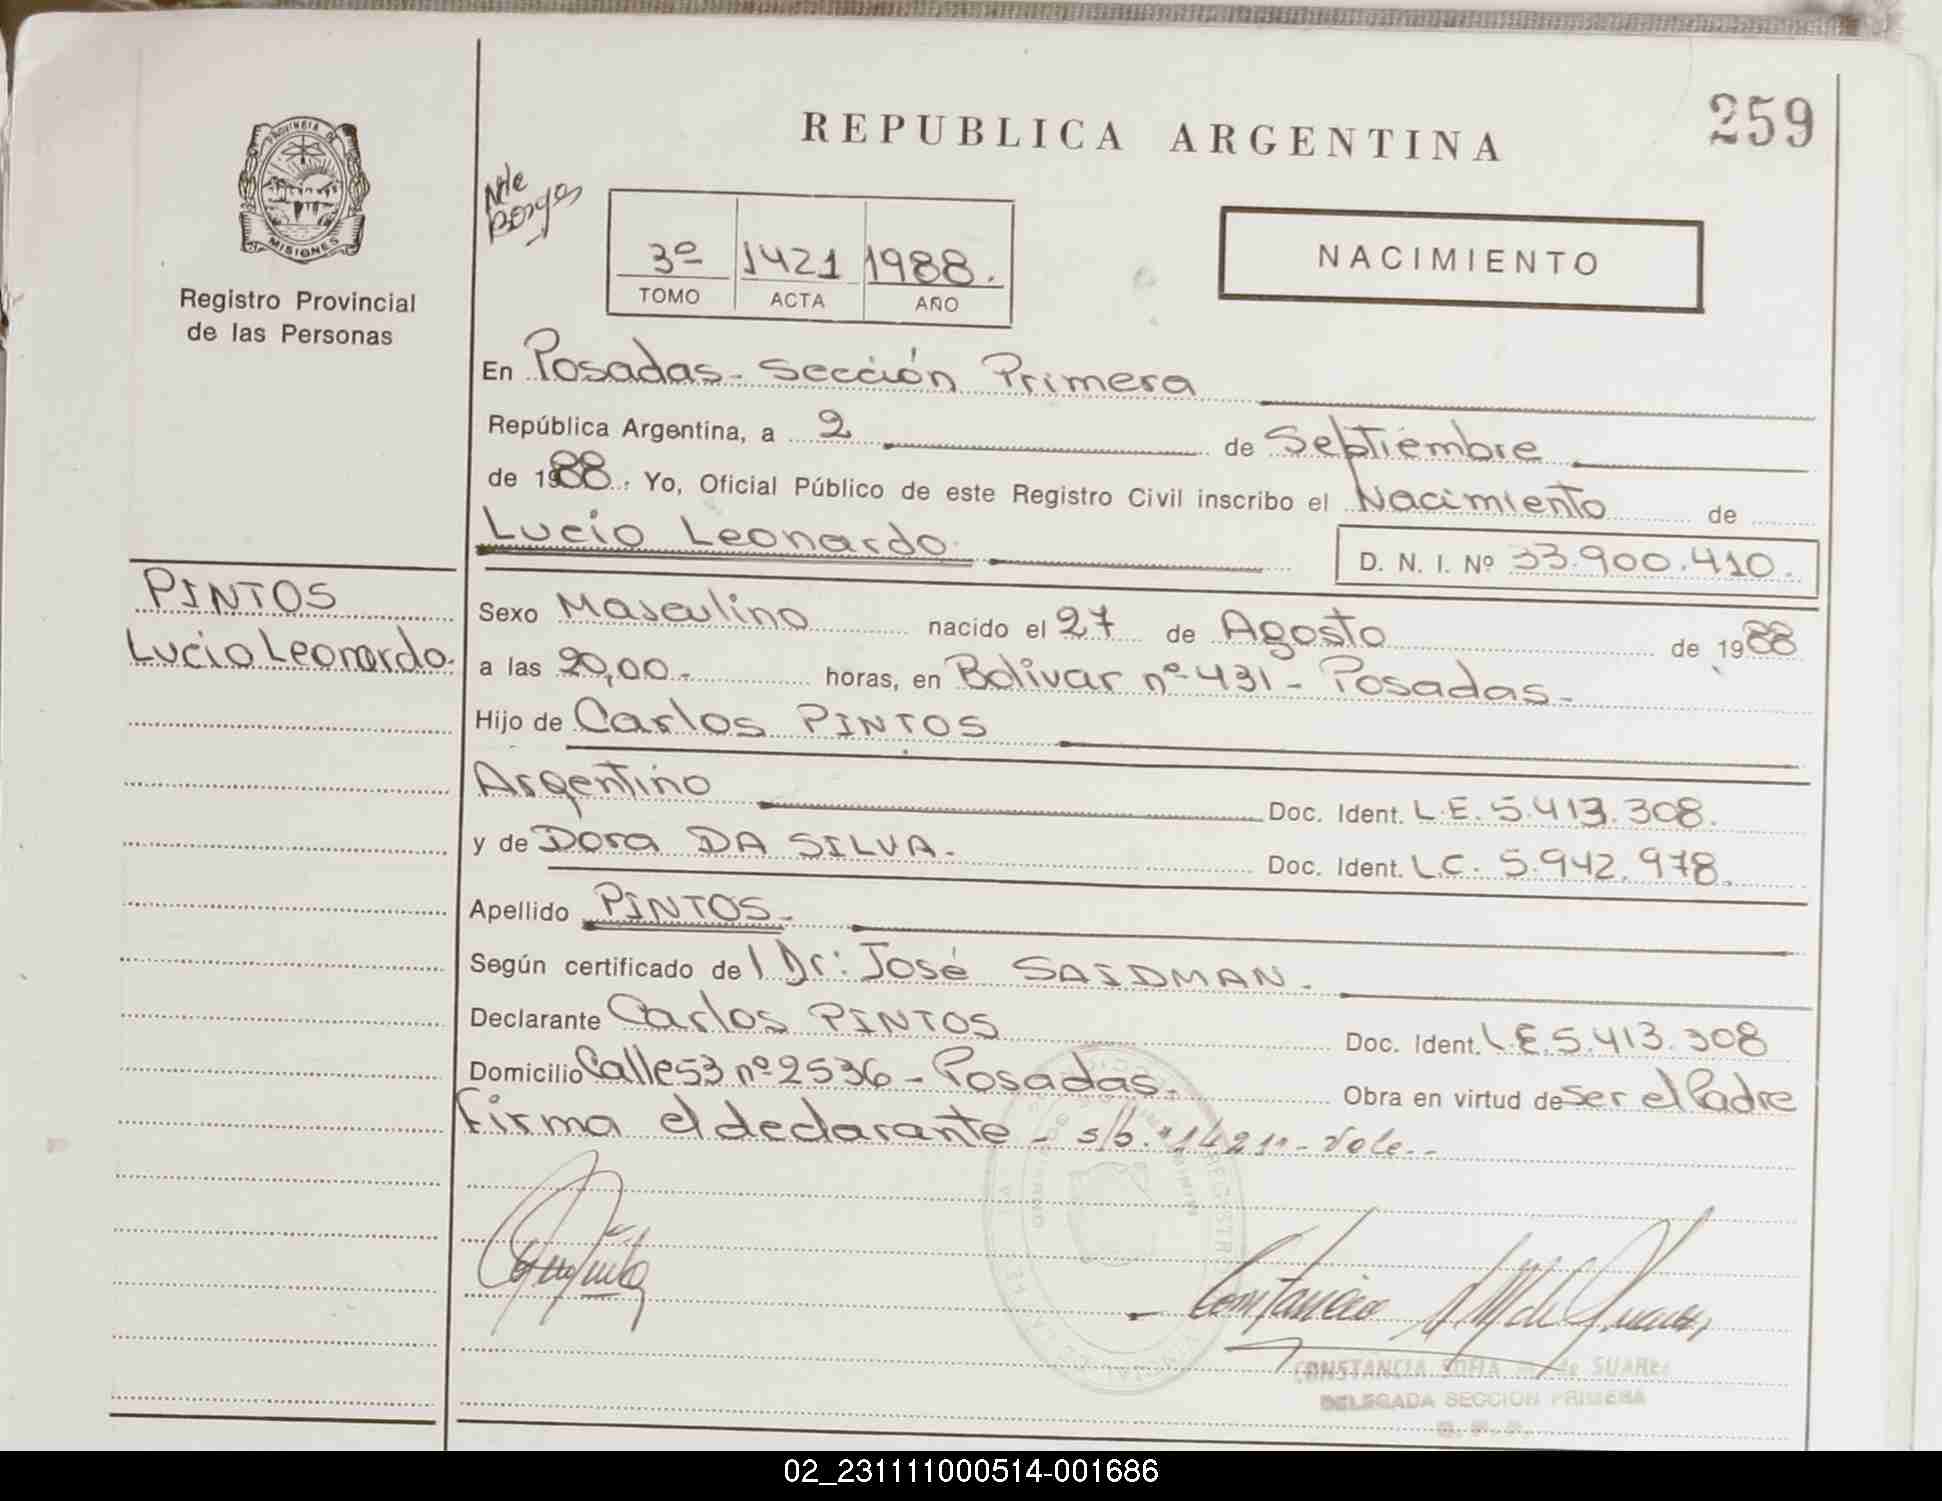 REPUBLICA ARGENTINA
259
PROVINCIA DE
MISIONES
Registro Provincial
de las Personas
Nte
Borges
3º 1421 1988.
TOMO ACTA AÑO
NACIMIENTO
En Posadas - Sección Primera
República Argentina, a 2 de Septiembre
de 1988. Yo, Oficial Público de este Registro Civil inscribo el Nacimiento de
Lucio Leonardo
D. N. I. Nº 33.900.410.
PINTOS
Lucio Leonardo.
Sexo Masculino nacido el 27 de Agosto de 1988
a las 20,00.- horas, en Bolivar nº 431 - Posadas -
Hijo de Carlos PINTOS
Argentino Doc. Ident. L.E. 5.413.308.
y de Dora DA SILVA. Doc. Ident. L.C. 5.942.978.
Apellido PINTOS.-
Según certificado del Dr: José SAIDMAN.-
Declarante Carlos PINTOS Doc. Ident. L.E. 5.413.308
Domicilio Calle 53 nº 2536 - Posadas. Obra en virtud de ser el Padre
Firma el declarante - s/b. "1421" - Vale.-
Constancia
CONSTANCIA SOFIA M. de SUAREZ
DELEGADA SECCION PRIMERA